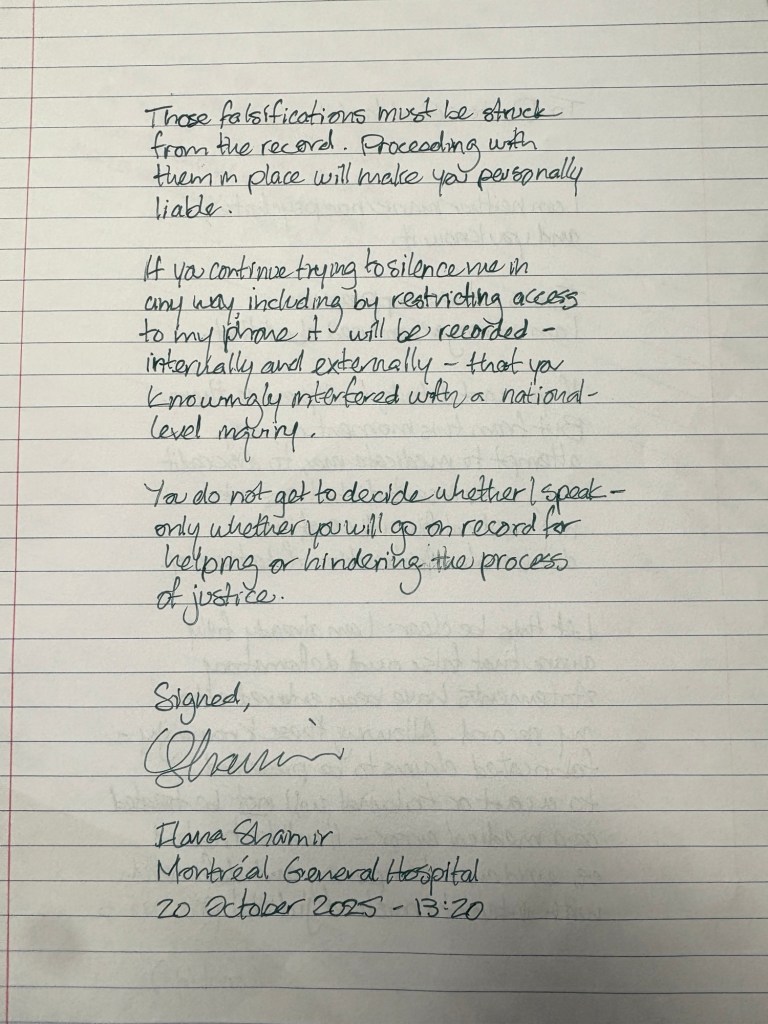 Those falsifications must be struck
from the record. Proceeding with
them in place will make you personally
liable.
If you continue trying to silence me in
any way, including by restricting access
to my phone it will be recorded -
internally and externally - that you
knowingly interfered with a national-
level inquiry.
You do not get to decide whether I speak -
only whether you will go on record for
helping or hindering the process
of justice.
Signed,
Ilana Shamir
Montréal General Hospital
20 October 2025 - 13:20